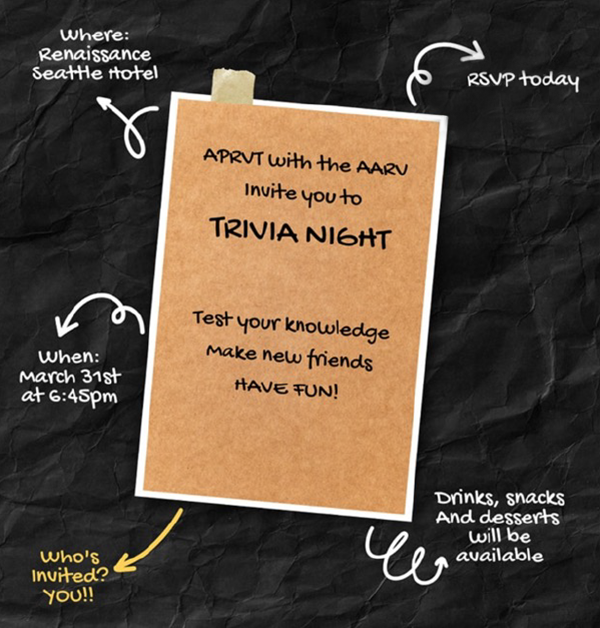 Where:
Renaissance
Seattle Hotel
RSVP today
APRVT with the AARV
Invite you to
TRIVIA NIGHT
Test your knowledge
Make new friends
HAVE FUN!
When:
March 31st
at 6:45pm
Drinks, snacks
And desserts
will be
available
Who's
Invited?
YOU!!